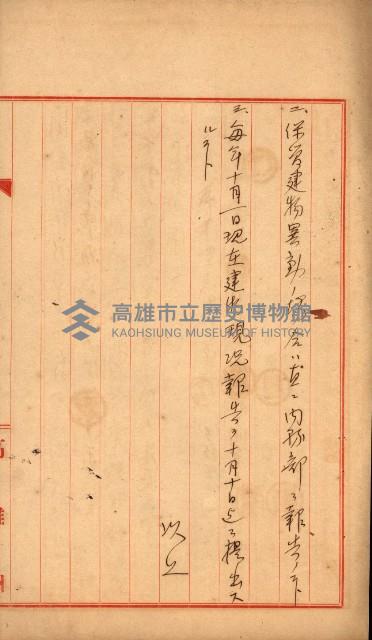 二、保管建物異動ノ 八直ニ内務部ニ報告ノコト
三、毎年十月一日現在建物現況報告ヲ十月十日迄ニ提出スルコト
以上
高雄州
高雄市立歷史博物館
KAOHSIUNG MUSEUM OF HISTORY